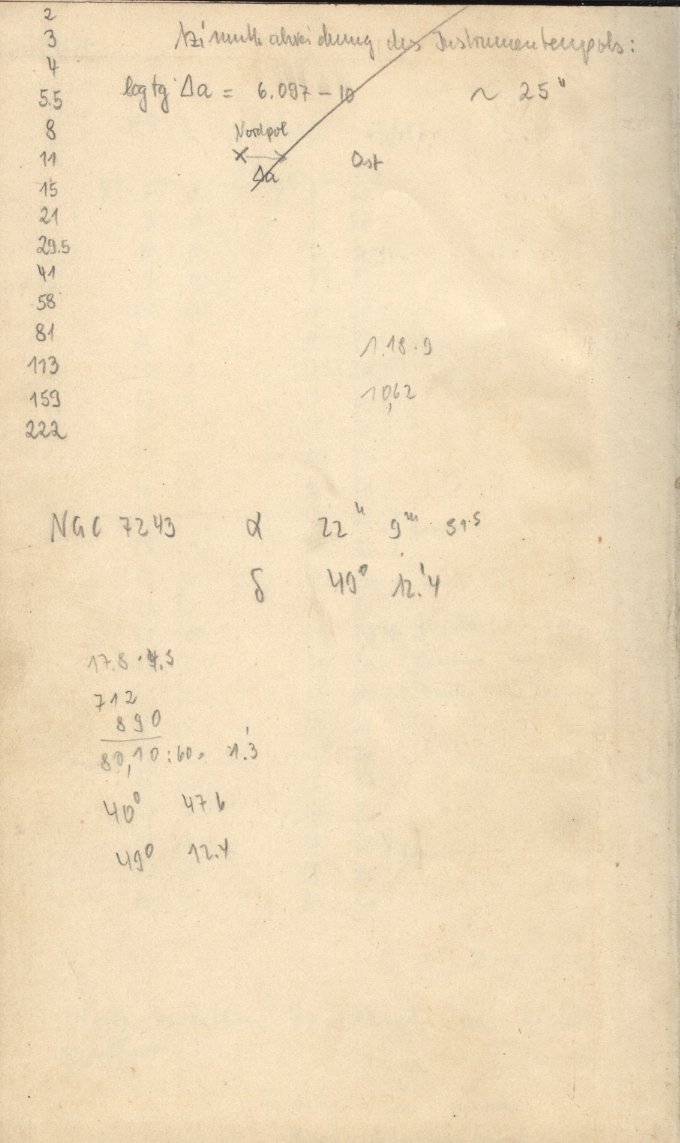 2
3
4
5.5
8
11
15
21
29.5
41
58
81
113
159
222
Azimuthabweichung des Instrumentenpols:
log tg Δa = 6.097 – 10 ~ 25"
Nordpol
Δa
Ost
1.18.9
10,62
NGC 7243 α 22ʰ 9ᵐ
δ 49° 12.'4
17.8 · 4.5
712
890
80,10 : 60 = 1.'3
40° 47 6
49° 12.4